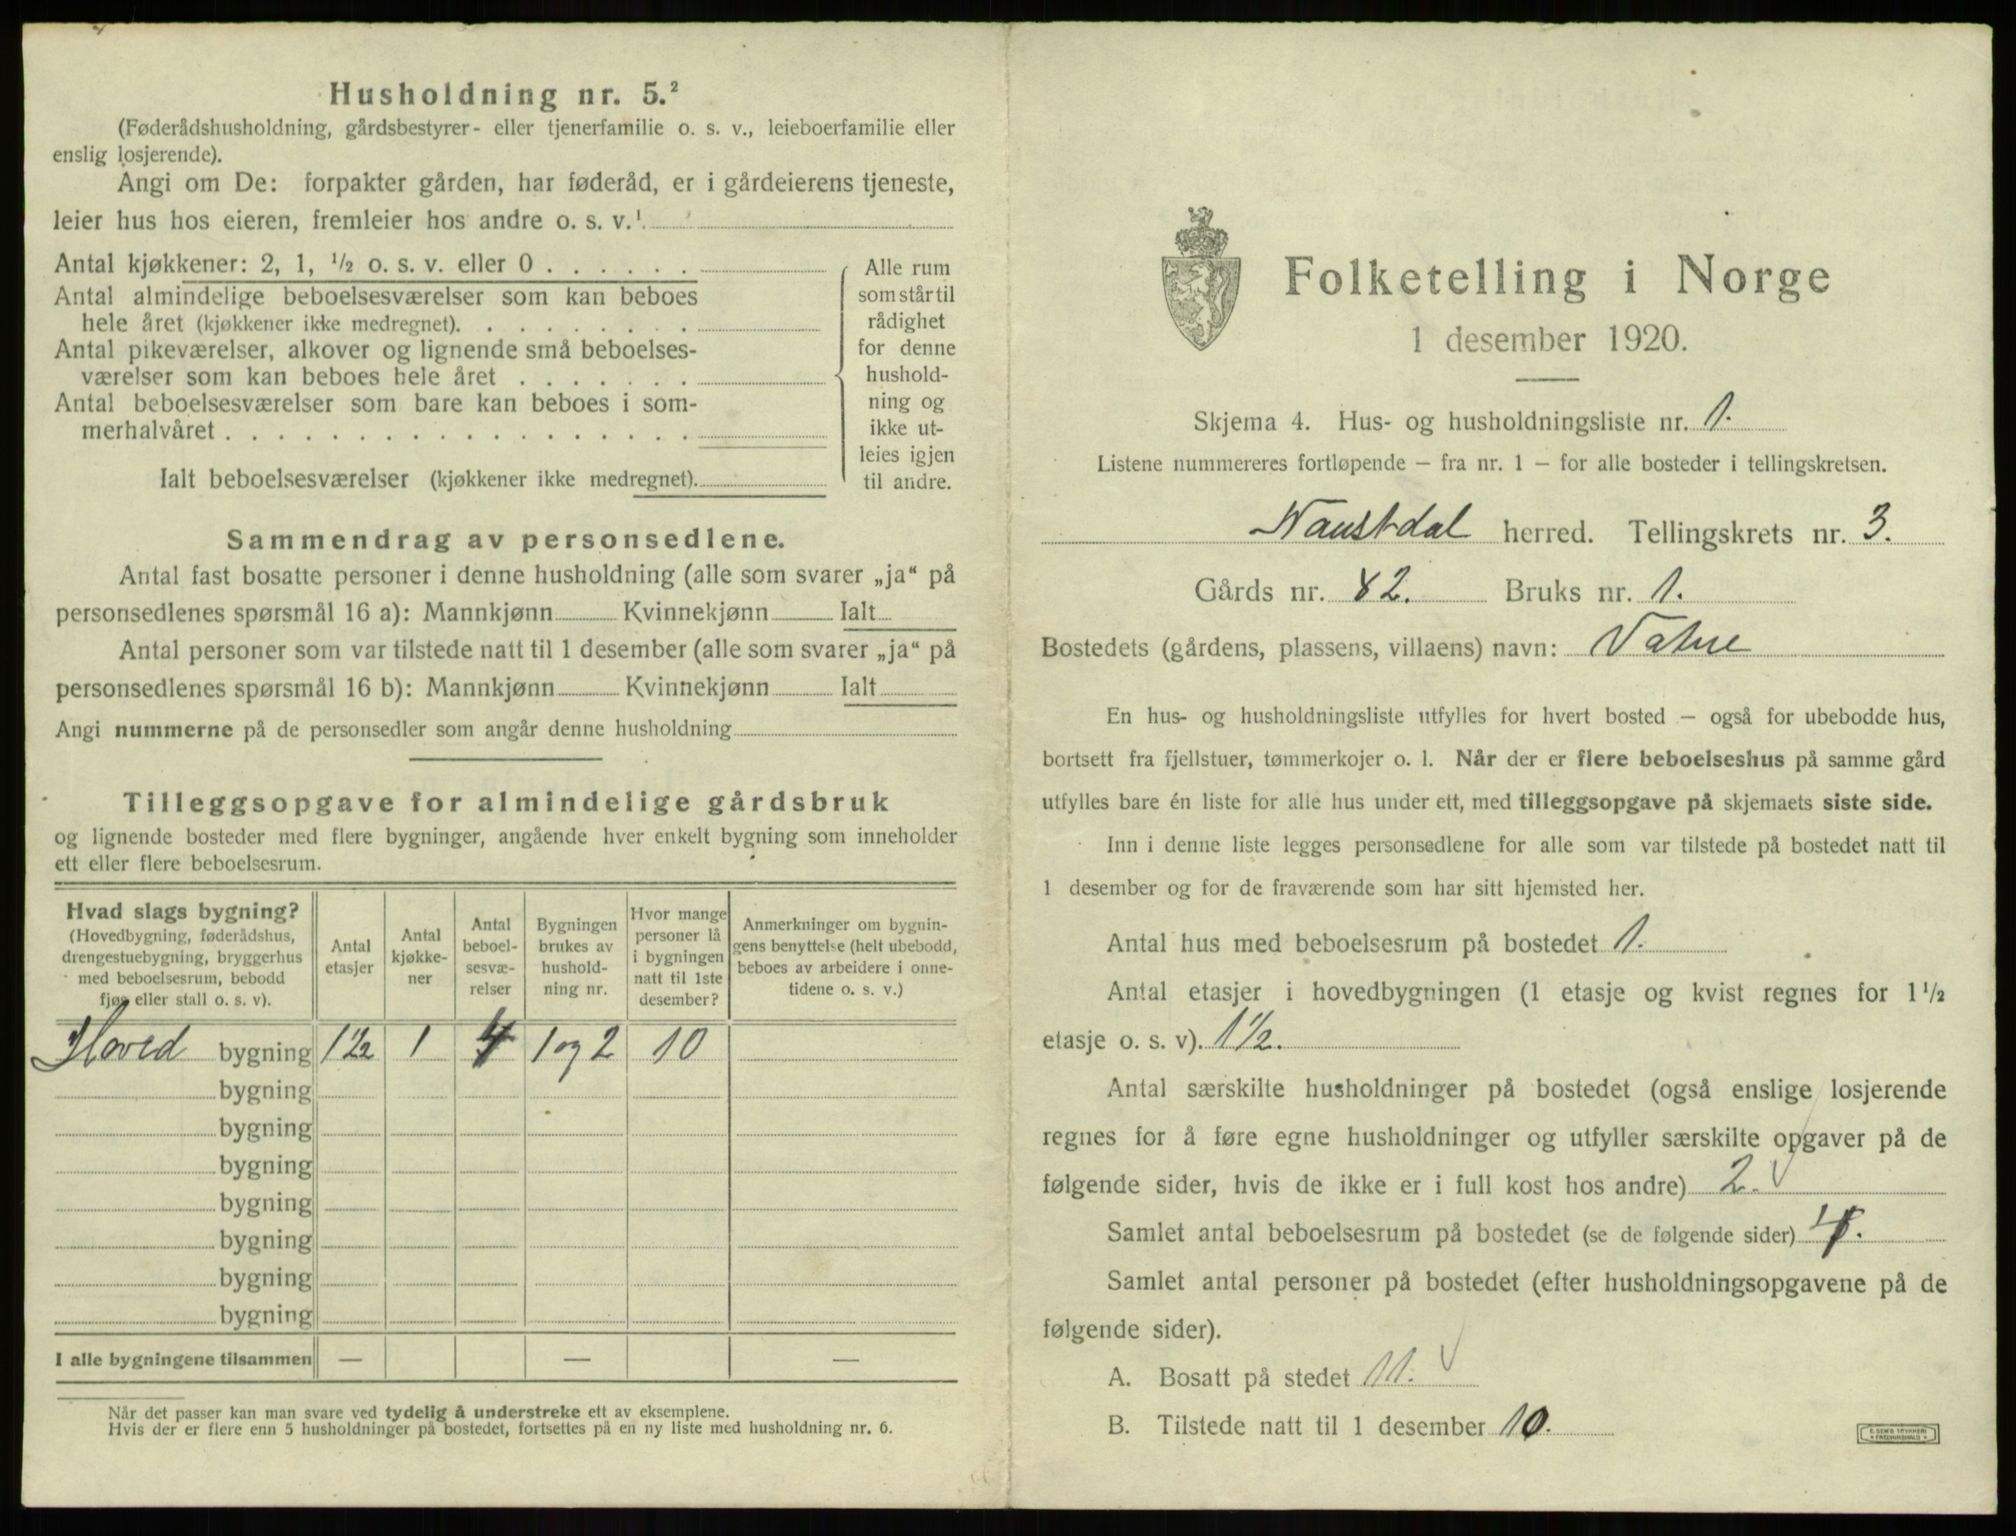 Husholdning nr. 5.²
(Føderådshusholdning, gårdsbestyrer- eller tjenerfamilie o. s. v., leieboerfamilie eller
enslig losjerende).
Angi om De: forpakter gården, har føderåd, er i gårdeierens tjeneste,
leier hus hos eieren, fremleier hos andre o. s. v.¹
Antal kjøkkener: 2, 1, ½ o. s. v. eller 0 . . . . . .
Antal almindelige beboelsesværelser som kan beboes
hele året (kjøkkener ikke medregnet). . . . . . . . .
Antal pikeværelser, alkover og lignende små beboelses-
værelser som kan beboes hele året . . . . . . .
Antal beboelsesværelser som bare kan beboes i som-
merhalvåret . . . . . . . . . . . . . . . . . .
Ialt beboelsesværelser (kjøkkener ikke medregnet).
Alle rum
som står til
rådighet
for denne
hushold-
ning og
ikke ut-
leies igjen
til andre.
Sammendrag av personsedlene.
Antal fast bosatte personer i denne husholdning (alle som svarer „ja“ på
personsedlenes spørsmål 16 a): Mannkjønn Kvinnekjønn Ialt
Antal personer som var tilstede natt til 1 desember (alle som svarer „ja“ på
personsedlenes spørsmål 16 b): Mannkjønn Kvinnekjønn Ialt
Angi nummerne på de personsedler som angår denne husholdning
Tilleggsopgave for almindelige gårdsbruk
og lignende bosteder med flere bygninger, angående hver enkelt bygning som inneholder
ett eller flere beboelsesrum.
Hvad slags bygning?
(Hovedbygning, føderådshus,
drengestuebygning, bryggerhus
med beboelsesrum, bebodd
fjøs eller stall o. s. v).
Antal
etasjer
Antal
kjøkke-
ner
Antal
beboel-
sesvæ-
relser
Bygningen
brukes av
hushold-
ning nr.
Hvor mange
personer lå
i bygningen
natt til 1ste
desember?
Anmerkninger om bygnin-
gens benyttelse (helt ubebodd,
beboes av arbeidere i onne-
tidene o. s. v.)
Hoved bygning 1½ 1 4 1 og 2 10
bygning
bygning
bygning
bygning
bygning
bygning
bygning
I alle bygningene tilsammen — — —
Når det passer kan man svare ved tydelig å understreke ett av eksemplene.
Hvis der er flere enn 5 husholdninger på bostedet, fortsettes på en ny liste med husholdning nr. 6.
Folketelling i Norge
1 desember 1920.
Skjema 4. Hus- og husholdningsliste nr. 1.
Listene nummereres fortløpende – fra nr. 1 – for alle bosteder i tellingskretsen.
Naustdal herred. Tellingskrets nr. 3.
Gårds nr. 82. Bruks nr. 1.
Bostedets (gårdens, plassens, villaens) navn: Vatne
En hus- og husholdningsliste utfylles for hvert bosted – også for ubebodde hus,
bortsett fra fjellstuer, tømmerkojer o. l. Når der er flere beboelseshus på samme gård
utfylles bare én liste for alle hus under ett, med tilleggsopgave på skjemaets siste side.
Inn i denne liste legges personsedlene for alle som var tilstede på bostedet natt til
1 desember og for de fraværende som har sitt hjemsted her.
Antal hus med beboelsesrum på bostedet 1.
Antal etasjer i hovedbygningen (1 etasje og kvist regnes for 1½
etasje o. s. v). 1½.
Antal særskilte husholdninger på bostedet (også enslige losjerende
regnes for å føre egne husholdninger og utfyller særskilte opgaver på de
følgende sider, hvis de ikke er i full kost hos andre) 2.
Samlet antal beboelsesrum på bostedet (se de følgende sider) 4.
Samlet antal personer på bostedet (efter husholdningsopgavene på de
følgende sider).
A. Bosatt på stedet 11.
B. Tilstede natt til 1 desember 10.